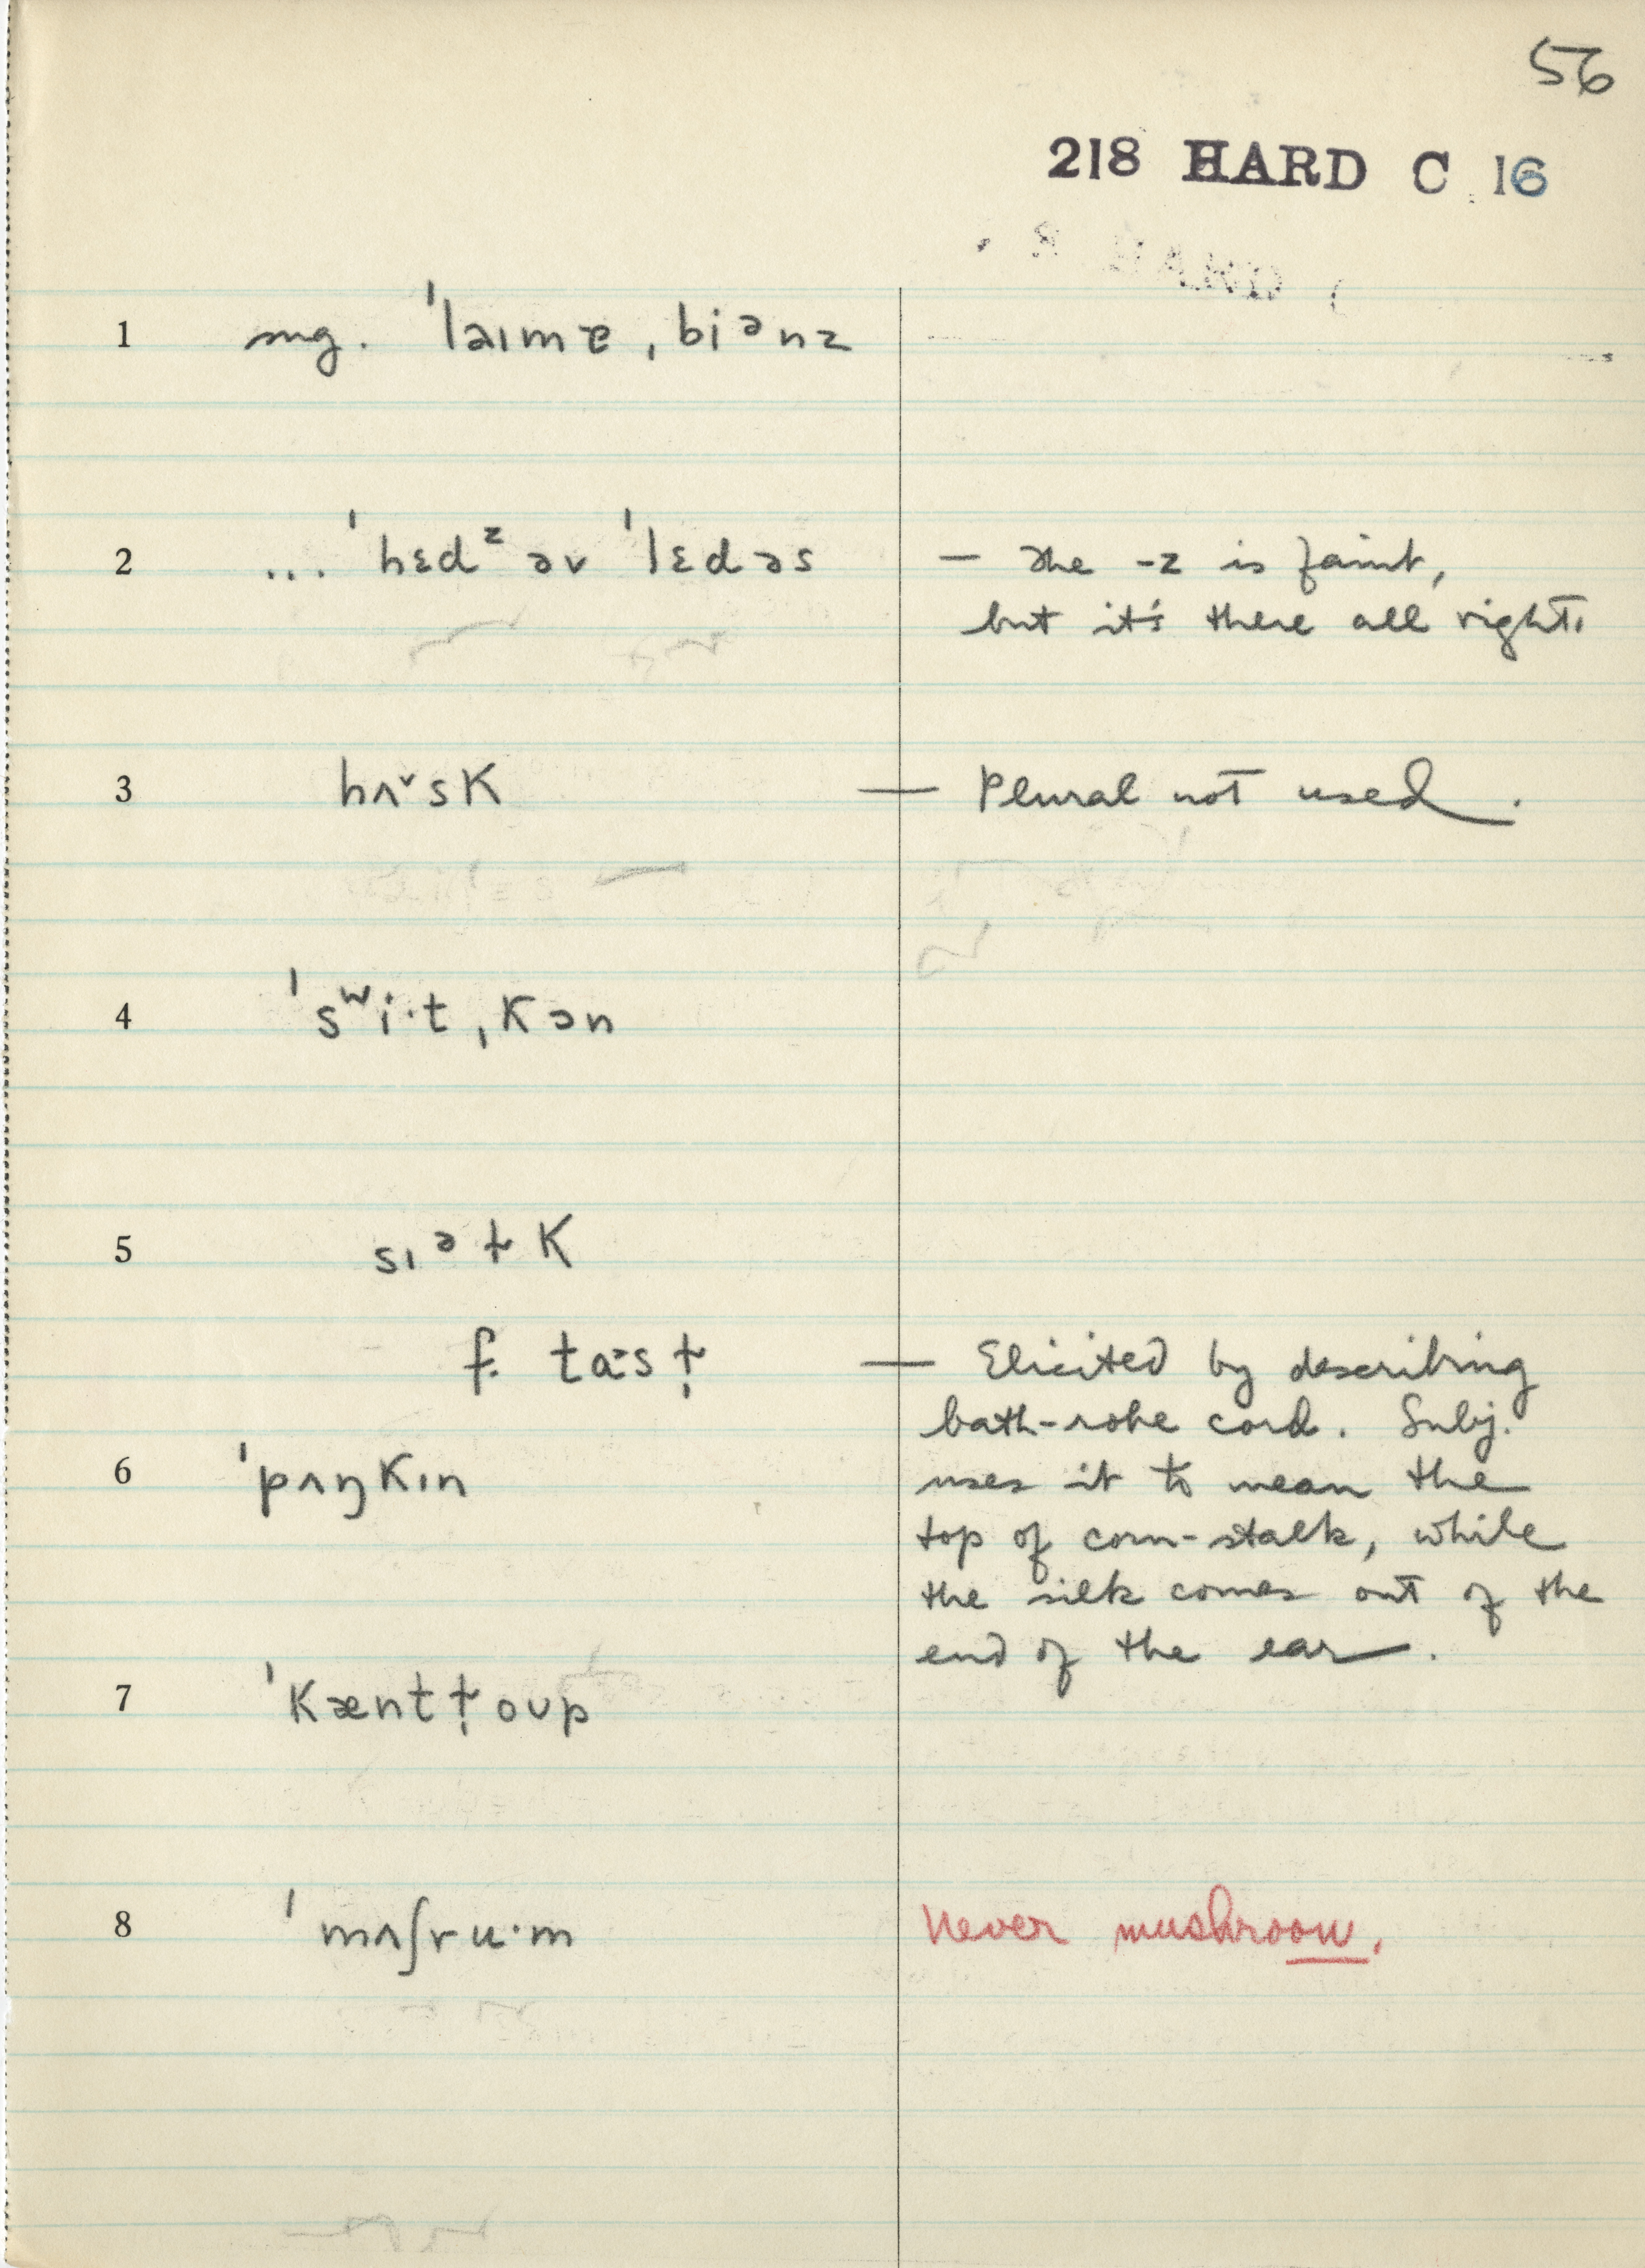 56
218 HARD C 16
1 sng. ˈlaɪmɐ ˌbiᵊnz
2 ... ˈhɛdᶻ əv ˈlɛdəs — The -z is faint,
but it's there all right.
3 hʌ˅sK — Plural not used.
4 ˈsʷi·t ˌKɔn
5 sɪᵊɫK
f. tɑ˃sɫ̩ — Elicited by describing
bath-robe cord. Subj.
6 ˈpʌŋKɪn uses it to mean the
top of corn-stalk, while
the silk comes out of the
end of the ear.
7 ˈKæntɫ̩oʊp
8 ˈmʌʃru·m Never mushroom.